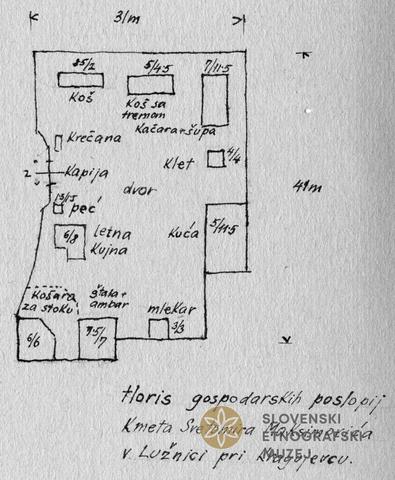 31m
8.5/2
5/4.5
7/11.5
Koš
Koš sa
tremom
Kačara+šupa
Krečana
Klet
4/4
2
Kapija
dvor
41m
peć
6/8
letna
Kujna
Kuća
5/11.5
Košara
za stoku
štala+
ambar
mlekar
6/6
7.5/7
3/3
tloris gospodarskih poslopij
Kmeta Svetomira Maksimovića
v Lužnici pri Kragojevcu.
SLOVENSKI
ETNOGRAFSKI
MUZEJ